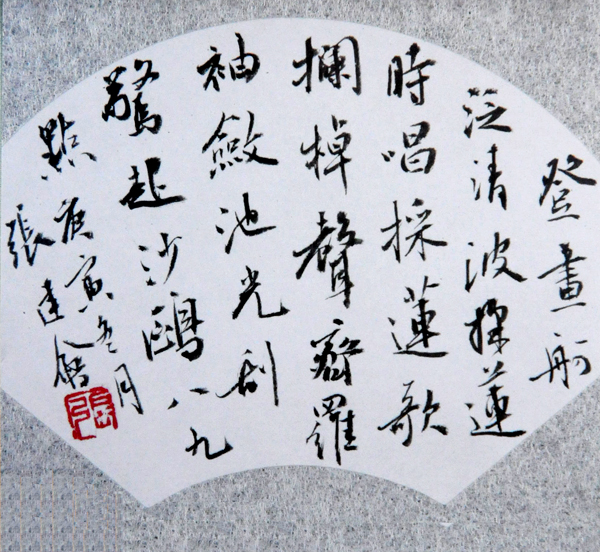 登畫舸
泛清波採蓮
時唱採蓮歌
攔棹聲齊羅
袖斂池光
驚起沙鷗八九
點庚寅冬月
張達
張